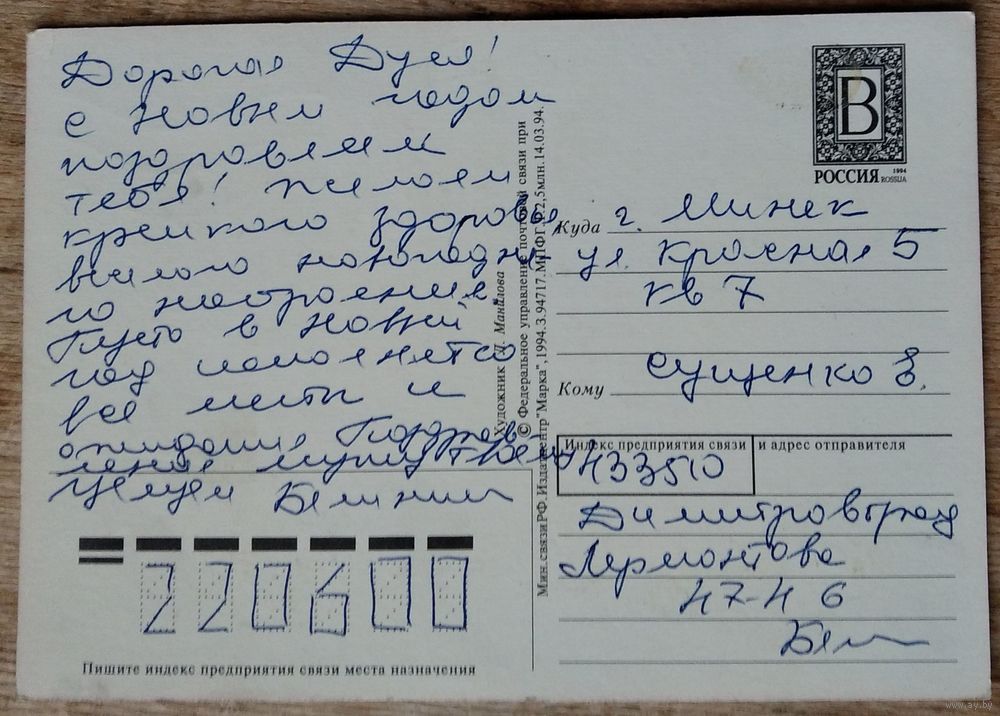 Дорогая Дуся!
С Новым годом
поздравляем
тебя! Желаем
крепкого здоровья,
веселого новогодне
го настроения.
Пусть в Новый
год исполнятся
все мечты и
ожидания. Поздрав
ления мужу твоему
Целуем
Художник Д. Манилова
© Федеральное управление почтовой связи при
Мин.связи РФ. Издатцентр "Марка", 1994.З.94717.МПФГ. 2,5млн.14.03.94.
B
РОССИЯ 1994 ROSSIJA
Куда г. Минск
ул. Красная 5
кв 7
Кому Сущенко Е.
Индекс предприятия связи и адрес отправителя
433510
Димитровград
Лермонтова
47-46
220600
Пишите индекс предприятия связи места назначения
www.ay.by